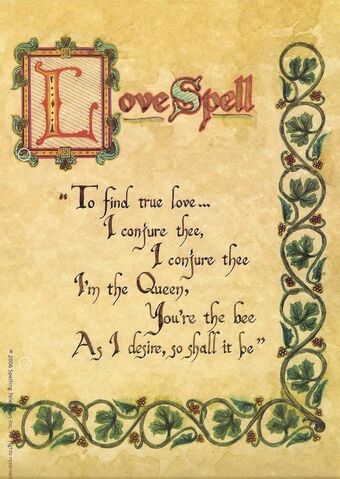 Love Spell
"To find true love...
I conjure thee,
I conjure thee
I'm the Queen,
You're the bee
As I desire, so shall it be"
® 2006 Spelling Television Inc. All rights reserved